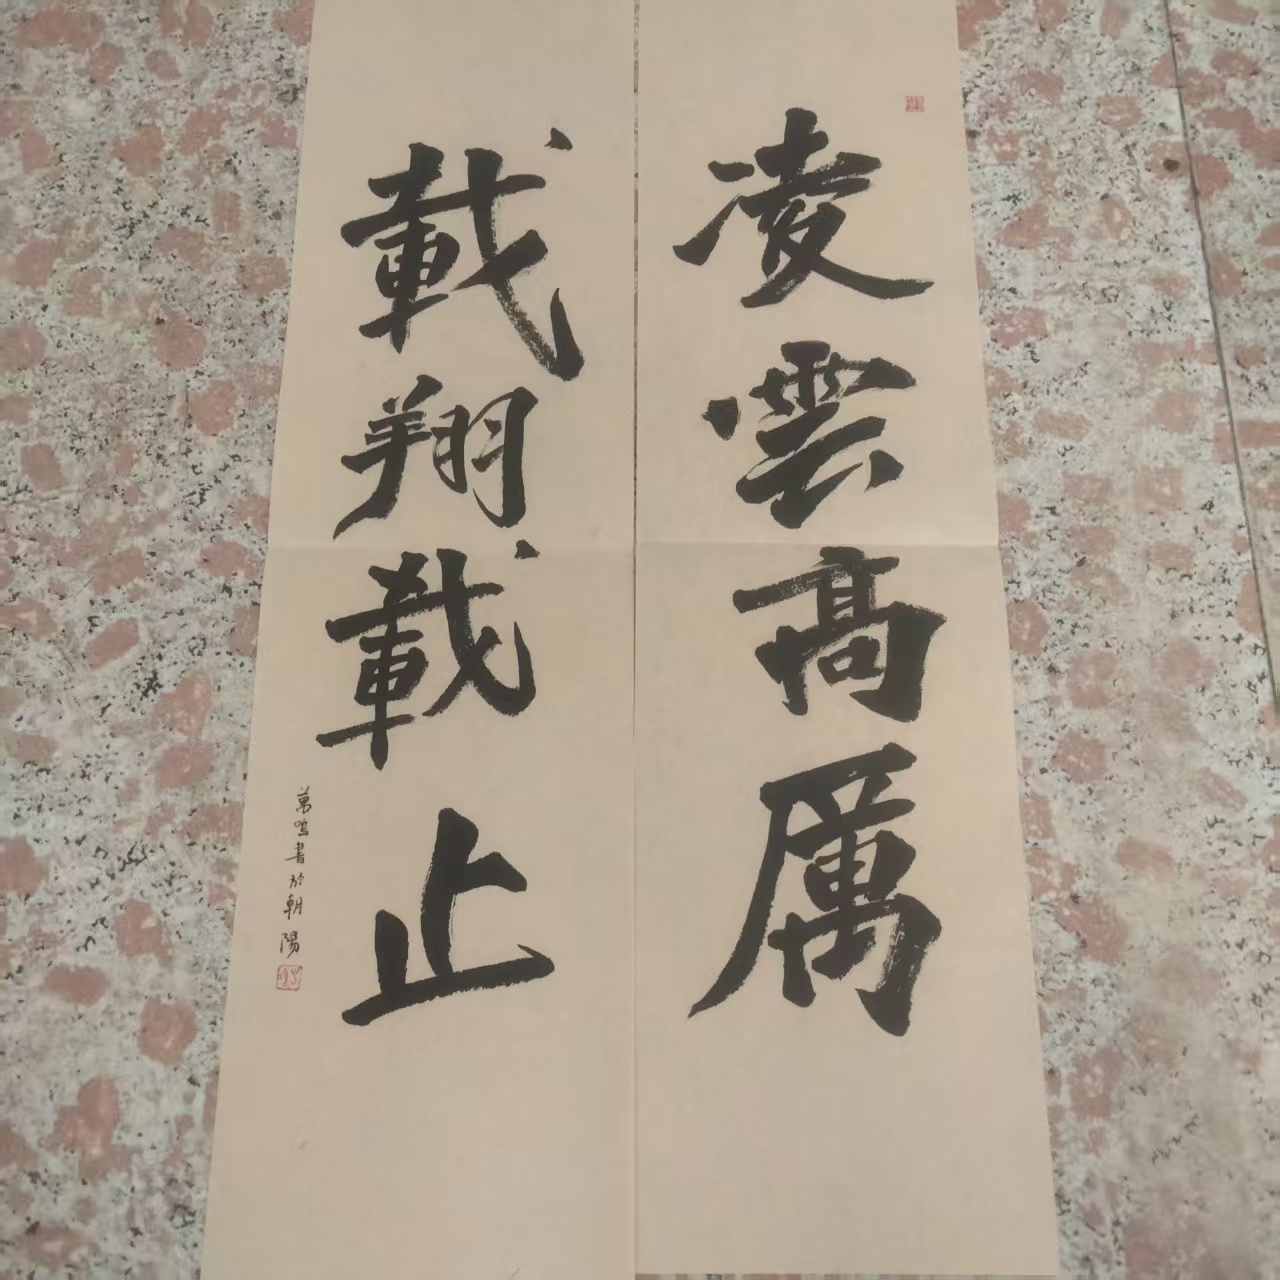 凌雲高厲
載翔載止
萬鳴書於朝陽